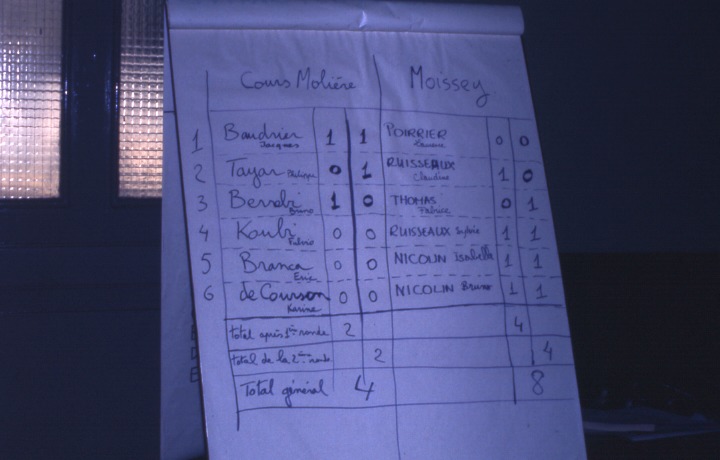 Cours Molière Moissey
1 Baudrier Jacques 1 1 POIRRIER 0 0
2 Tayar Philippe 0 1 RUISSEAUX Claudine 1 0
3 Berrebi Bruno 1 0 THOMAS Fabrice 0 1
4 Koubi Fulvio 0 0 RUISSEAUX Sylvie 1 1
5 Branca Eric 0 0 NICOLIN Isabelle 1 1
6 de Courson Karine 0 0 NICOLIN Bruno 1 1
Total après 1ère ronde 2 4
total de la 2ème ronde 2 4
Total général 4 8